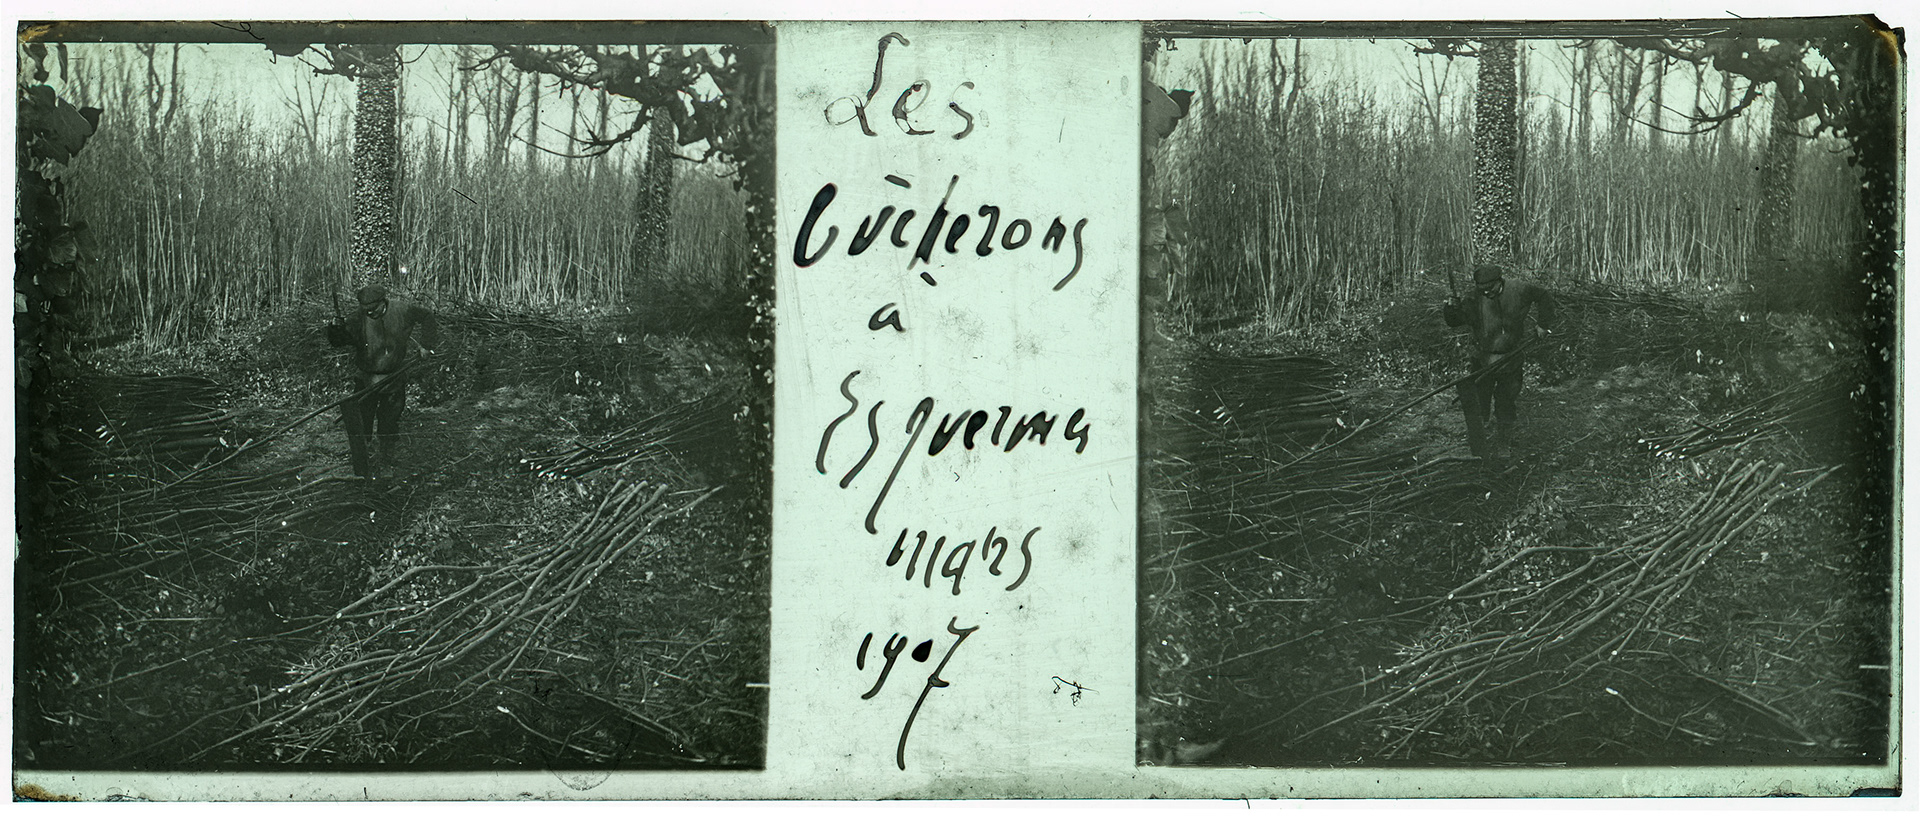 Les
bûcherons
à
Esquerma
mars
1907